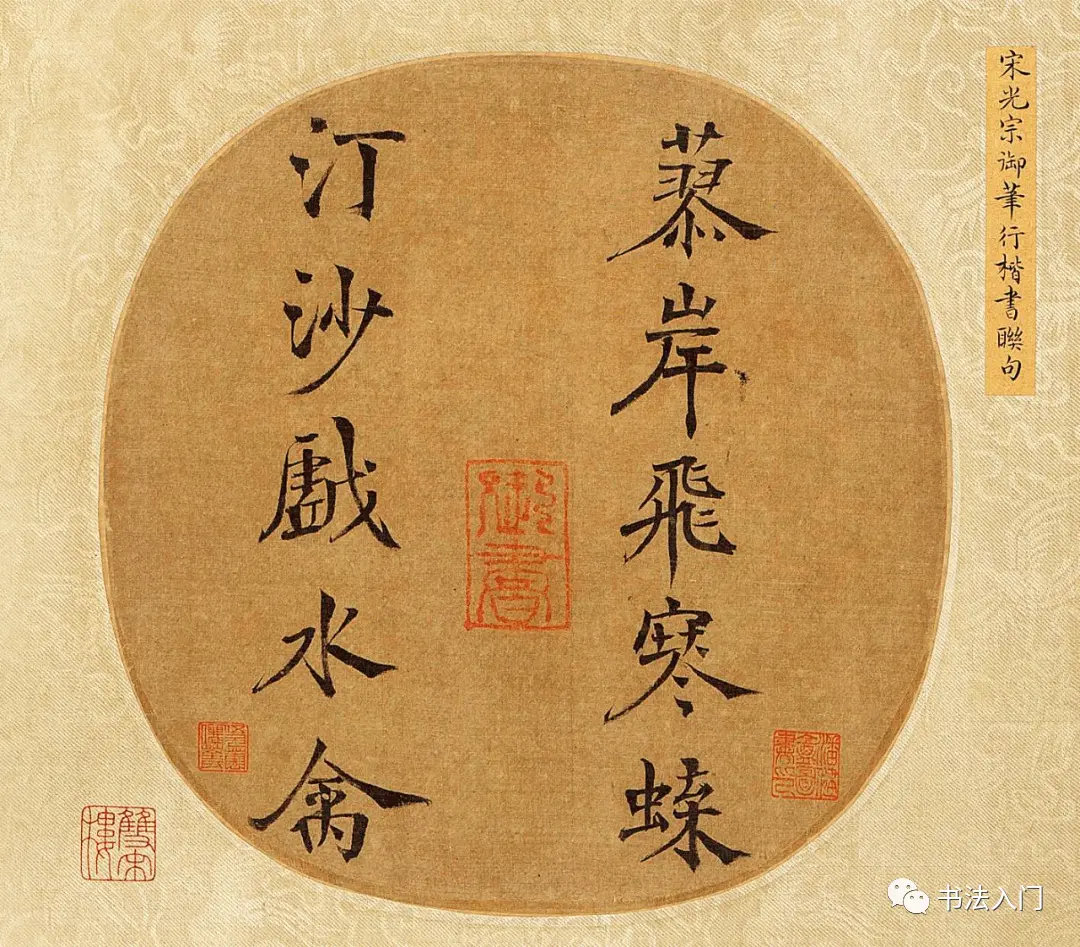 宋光宗御筆行楷書聯句
蓼岸飛寒蝶
御書
汀沙戲水禽
雙宋樓
书法入门